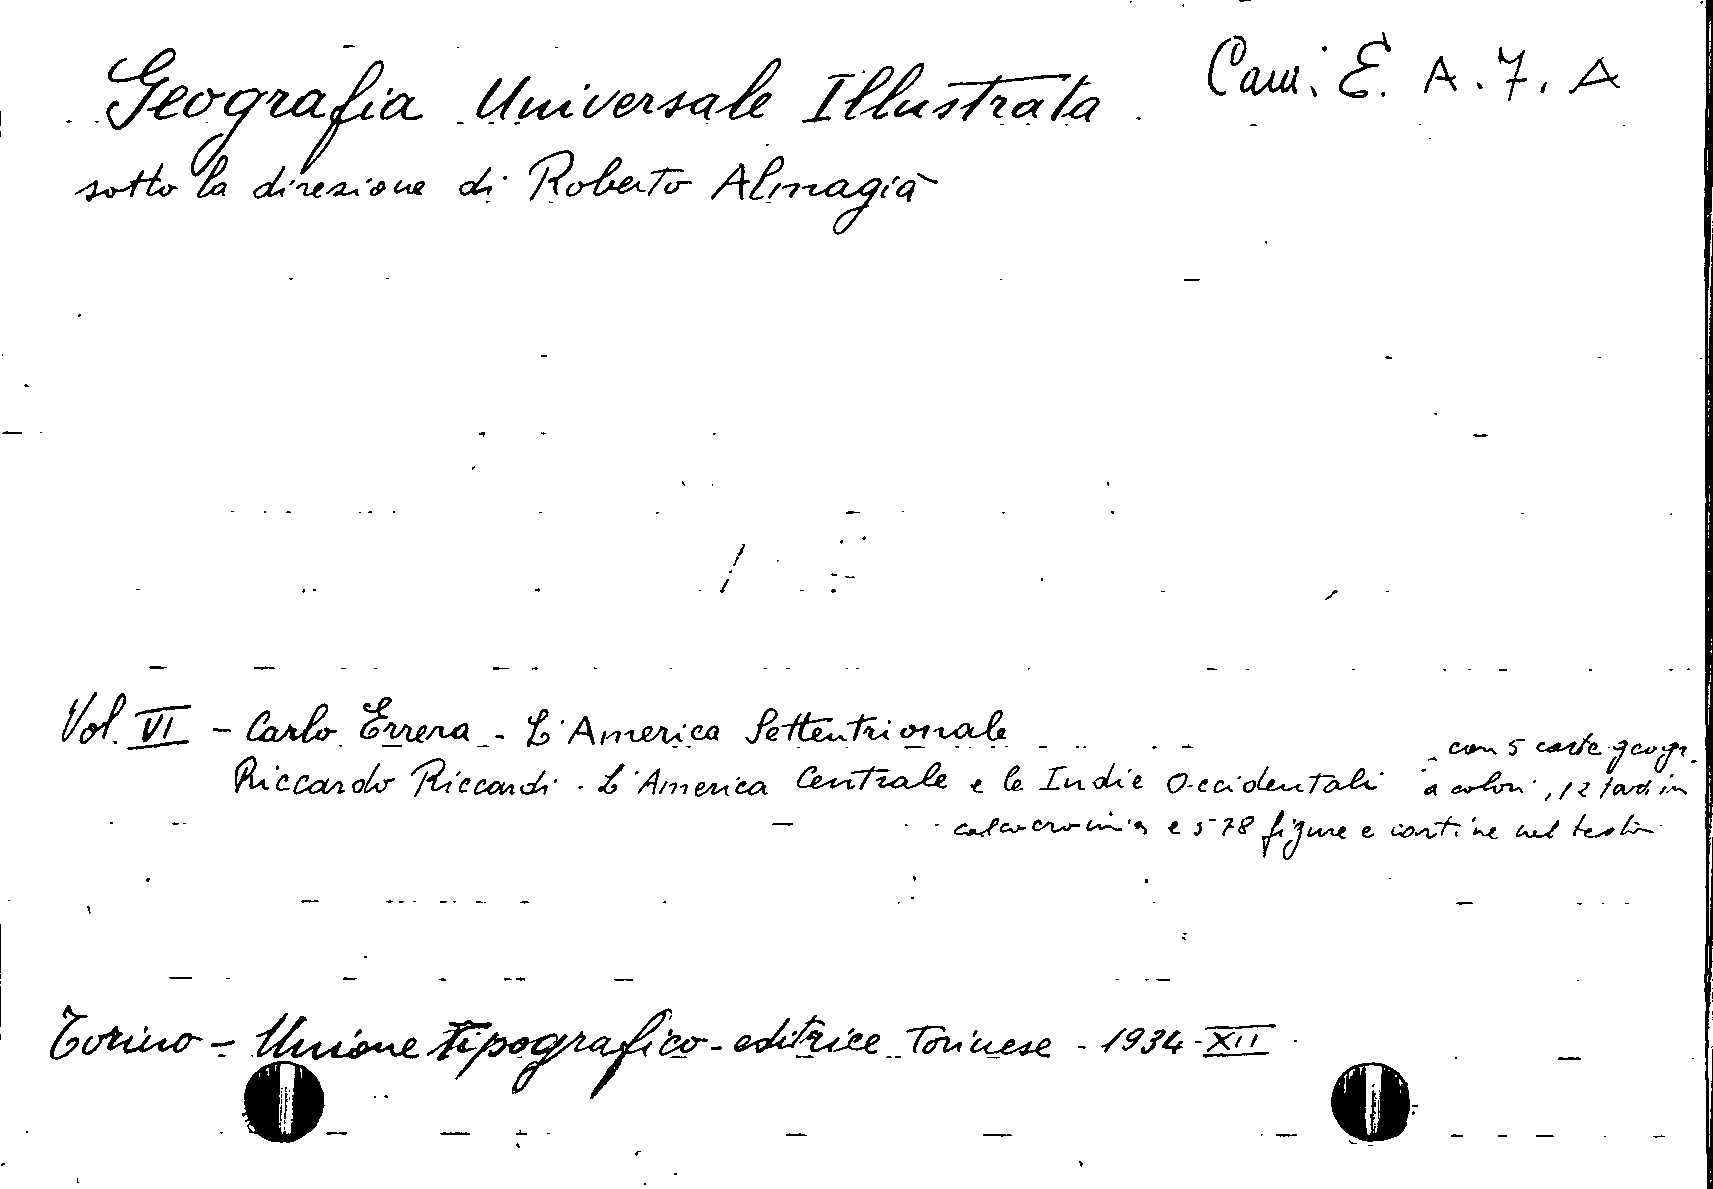 Geografia Universale Illustrata
Cam. E. A. 7. A
sotto la direzione di Roberto Almagià
Vol. VI - Carlo Errera - L'America Settentrionale
Riccardo Riccardi - L'America Centrale e le Indie Occidentali con 5 carte geogr.
a colori, 12 tav. in
calcocromia e 578 figure e cartine nel testo
Torino - Unione tipografico-editrice Torinese - 1934 - XII